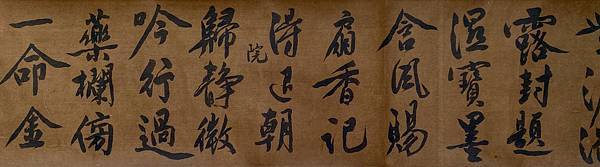 露封題
湿寶墨
含風賜
扇香記
得退朝
歸靜院微
吟行過
藥欄傍
一命金